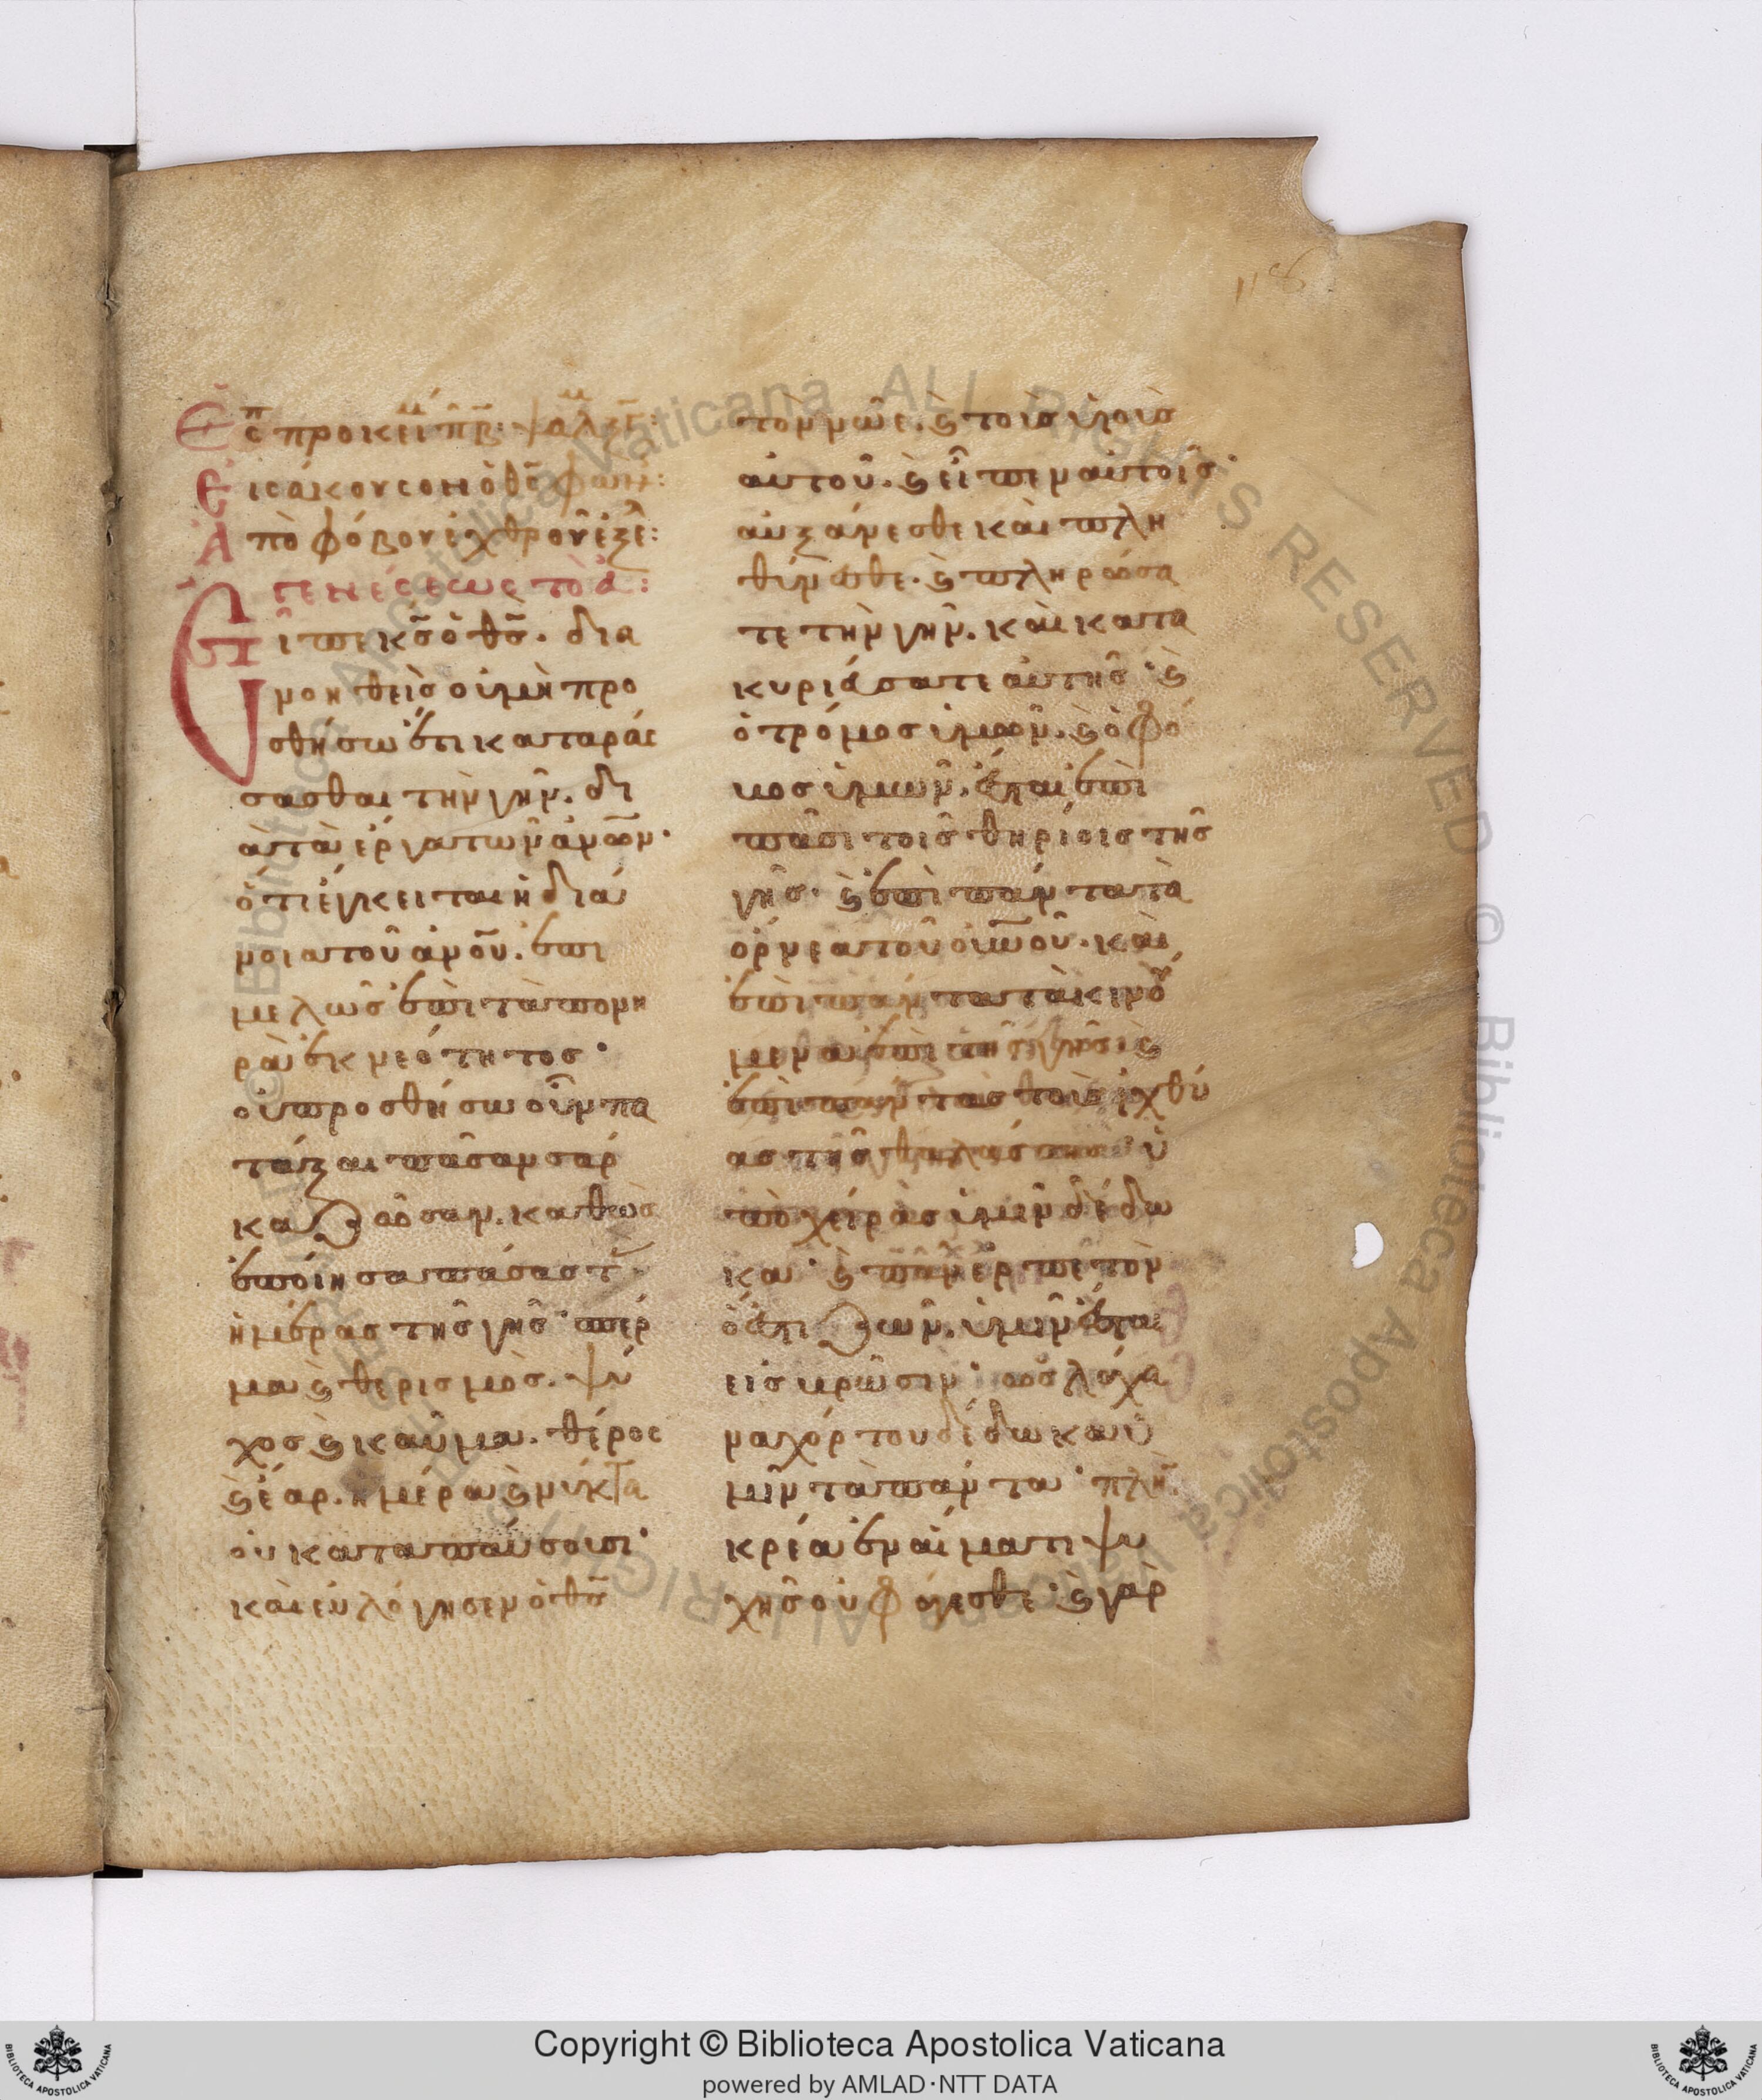 118
Ἑσπ προκείμ ἦχ β· ψαλ ξγ:
Εἰσάκουσον ὁ θς φων:
Ἀπὸ φόβου ἐχθροῦ ἐξε:
Γενέσεως τὸ ἀ:
Εἶπε κς ὁ θς. δια
νοηθεὶς οὐ μὴ προ
σθήσω ἔτι καταρά
σασθαι τὴν γῆν. δι
ὰ τὰ ἔργα τῶν ἀνῶν·
ὅτι ἔγκειται ἡ διά
νοια τοῦ ἀνοῦ. ἐπι
μελῶς ἐπὶ τὰ πονη
ρὰ ἐκ νεότητος·
οὐ προσθήσω οὖν πα
τάξαι πᾶσαν σάρ
κα ζῶσαν. καθὼς
ἐποίησα πάσας τ
ἡμέρας τῆς γῆς· σπέρ
μα ϗ θερισμὸς. ψύ
χος ϗ καῦμα. θέρος
ϗ ἔαρ. ἡμέρα ϗ νύκτα
οὐ καταπαύσουσι·
καὶ εὐλόγησεν ὁ θς
τὸν νῶε. ϗ τοὺς υἱοὺς
αὐτοῦ. ϗ εἶπεν αὐτοῖς·
αὐξάνεσθε καὶ πλη
θύνεσθε. ϗ πληρώσα
τε τὴν γῆν. καὶ κατα
κυριεύσατε αὐτῆς· ϗ
ὁ τρόμος ὑμῶν. ϗ ὁ φό
βος ὑμῶν. ἔσται ἐπὶ
πᾶσι τοῖς θηρίοις τῆς
γῆς· ϗ ἐπὶ πάντα τὰ
ὄρνεα τοῦ οὐνοῦ. καὶ
ἐπὶ πάντα τὰ κινού
μενα ἐπὶ τῆς γῆς· ϗ
ἐπὶ πάντας τοὺς ἰχθύ
ας τῆς θαλάσσης· ὑ
πὸ χεῖρας ὑμῖν δέδω
κα· ϗ πᾶν ἑρπετὸν
ὅ ἐστι ζῶν. ὑμῖν ἔσται
εἰς βρῶσιν· ὡς λάχα
να χόρτου δέδωκα ὑ
μῖν τὰ πάντα· πλὴν
κρέα ἐν αἵματι ψυ
χῆς οὐ φάγεσθε· ϗ γὰρ
Copyright © Biblioteca Apostolica Vaticana
powered by AMLAD·NTT DATA
© Biblioteca Apostolica Vaticana ALL RIGHTS RESERVED
BIBLIOTECA APOSTOLICA VATICANA
BIBLIOTECA APOSTOLICA VATICANA